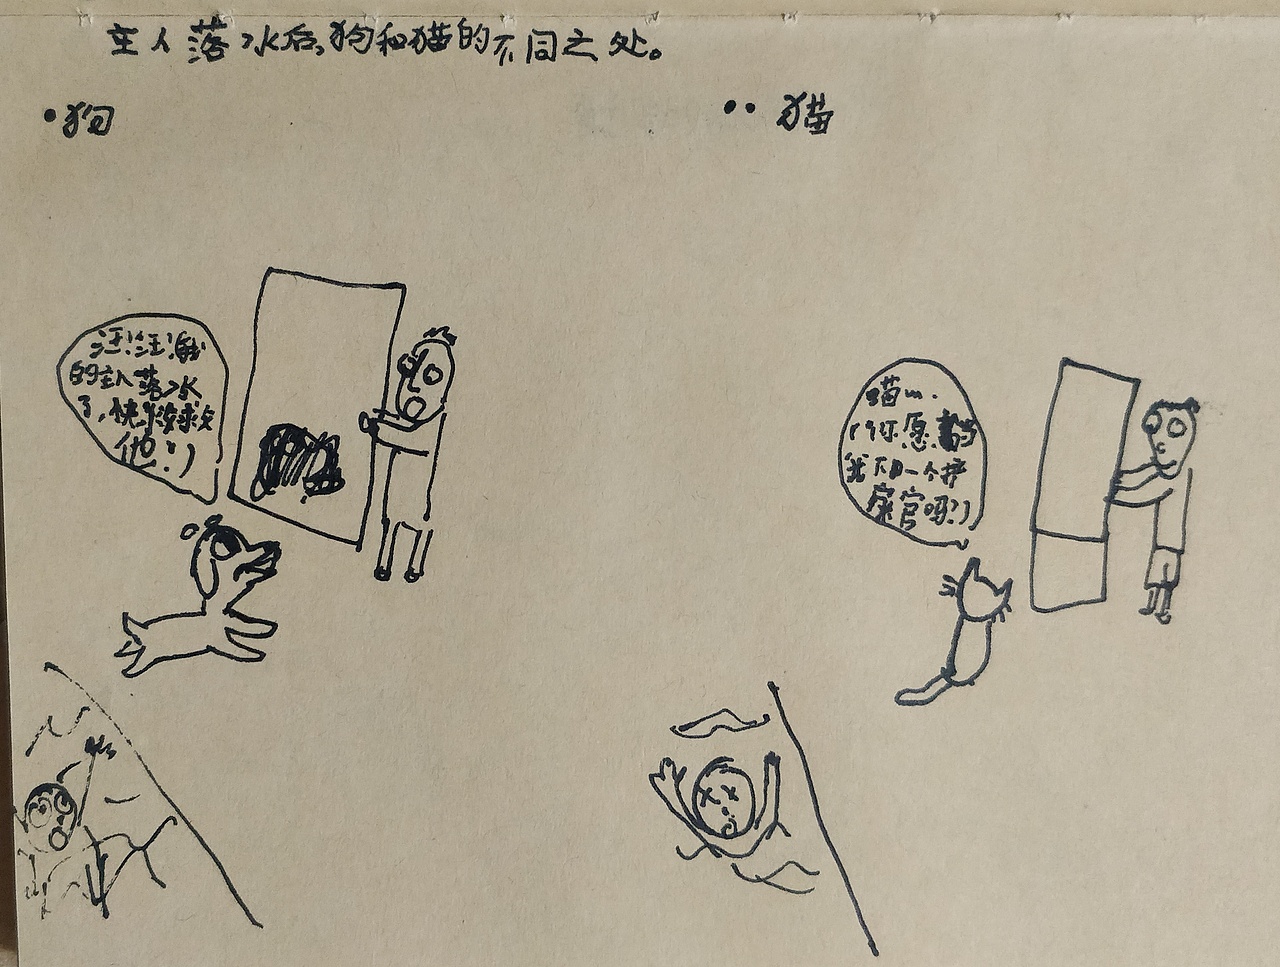 主人落水后,狗和猫的不同之处。
•狗
•• 猫
汪!汪!我
的主人落水
了,快去救
他!)
喵…
(你愿当
我下一个护
家官吗?)